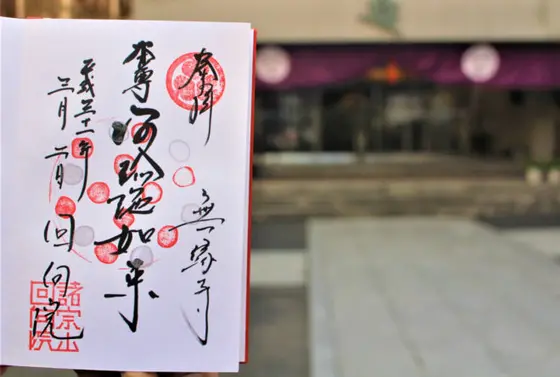 奉拝
無縁寺
本尊 阿弥陀如来
平成三十一年
三月 二日
回向院
諸宗山
回向院